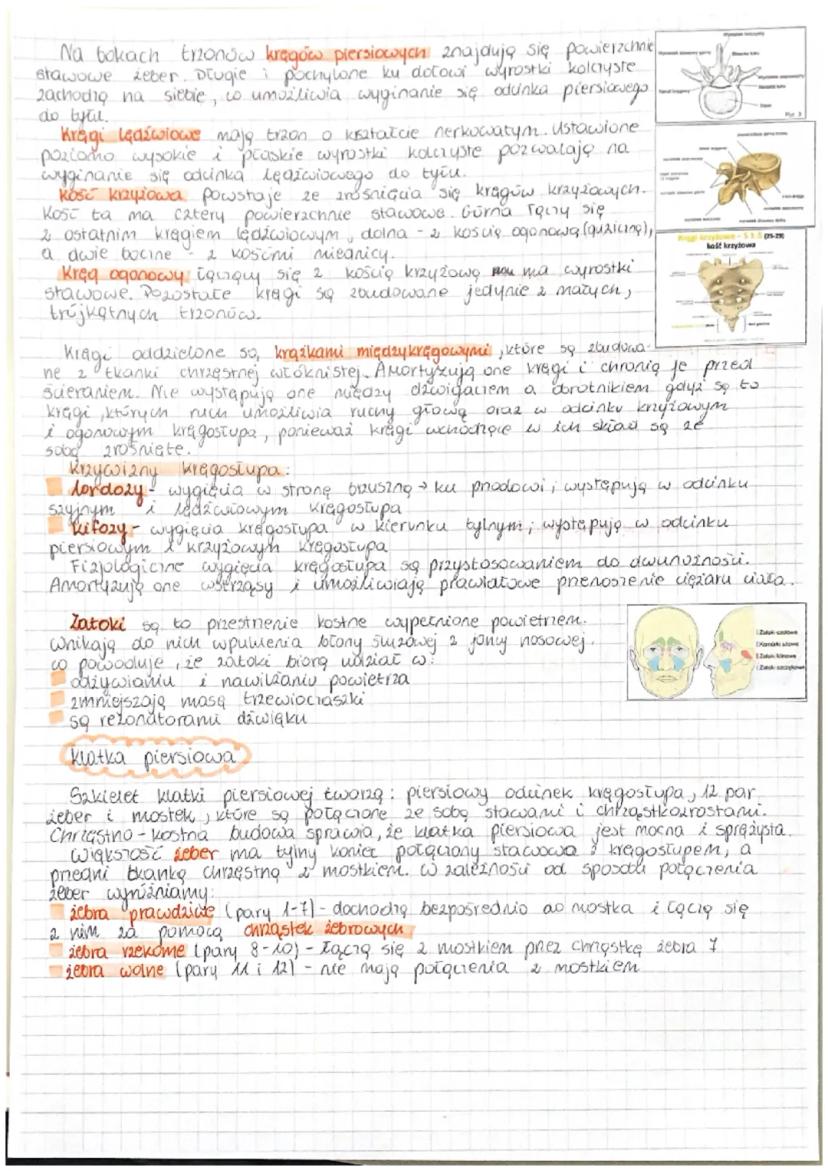 Na bokach trzonów kręgów piersiowych znajdują się powierzchnie
stawowe żeber. Długie i pochylone ku dołowi wyrostki kolczyste
zachodzą na siebie, co umożliwia wyginanie się odcinka piersiowego
do tyłu.
Kręgi lędźwiowe mają trzon o kształcie nerkowatym. Ustawione
poziomo wysokie i płaskie wyrostki kolczyste pozwalają na
wyginanie się odcinka lędźwiowego do tyłu.
Kość krzyżowa powstaje ze zrośnięcia się kręgów krzyżowych.
Kość ta ma cztery powierzchnie stawowe. Górna łączy się
z ostatnim kręgiem lędźwiowym, dolna - z kością ogonową (guziczną),
a dwie boczne - z kośćmi miednicy.
Kręg ogonowy łączący się z kością krzyżową ma wyrostki
stawowe. Pozostałe kręgi są zbudowane jedynie z małych,
trójkątnych trzonów.
Kręgi krzyżowe - S 1-5 (25-29)
kość krzyżowa
Kręgi oddzielone są krążkami międzykręgowymi, które są zbudowa-
ne z tkanki chrzęstnej włóknistej. Amortyzują one kręgi i chronią je przed
ścieraniem. Nie występują one między dźwigaczem a obrotnikiem gdyż są to
kręgi, których ruch umożliwia ruchy głową oraz w odcinku krzyżowym
i ogonowym kręgosłupa, ponieważ kręgi wchodzące w ich skład są ze
sobą zrośnięte.
Krzywizny kręgosłupa:
lordozy - wygięcia w stronę brzuszną → ku przodowi; występują w odcinku
szyjnym i lędźwiowym kręgosłupa
kifozy - wygięcia kręgosłupa w kierunku tylnym; występują w odcinku
piersiowym i krzyżowym kręgosłupa
Fizjologiczne wygięcia kręgosłupa są przystosowaniem do dwunożności.
Amortyzują one wstrząsy i umożliwiają prawidłowe przenoszenie ciężaru ciała.
Zatoki są to przestrzenie kostne wypełnione powietrzem.
Wnikają do nich wpuklenia błony śluzowej z jamy nosowej.
co powooduje, że zatoki biorą udział w:
odżywianiu i nawilżaniu powietrza
zmniejszają masą trzewioczaszki
są rezonatorami dźwięku
Zatoki czołowe
Komórki sitowe
Zatoki klinowe
Zatoki szczękowe
klatka piersiowa
Szkielet klatki piersiowej tworzą: piersiowy odcinek kręgosłupa, 12 par
żeber i mostek, które są połączone ze sobą stawami i chrząstkozrostami.
Chrzęstno - kostna budowa sprawia, że klatka piersiowa jest mocna i sprężysta.
Większość żeber ma tylny koniec połączony stawowo z kręgosłupem, a
przedni tkanką chrzęstną z mostkiem. W zależności od sposobu połączenia
żeber wyróżniamy:
żebra prawdziwe (pary 1-7) - dochodzą bezpośrednio do mostka i łączą się
z nim za pomocą chrząstek żebrowych
żebra rzekome (pary 8-10) - łączą się z mostkiem przez chrząstkę żebra 7
żebra wolne (pary 11 i 12) - nie mają połączenia z mostkiem